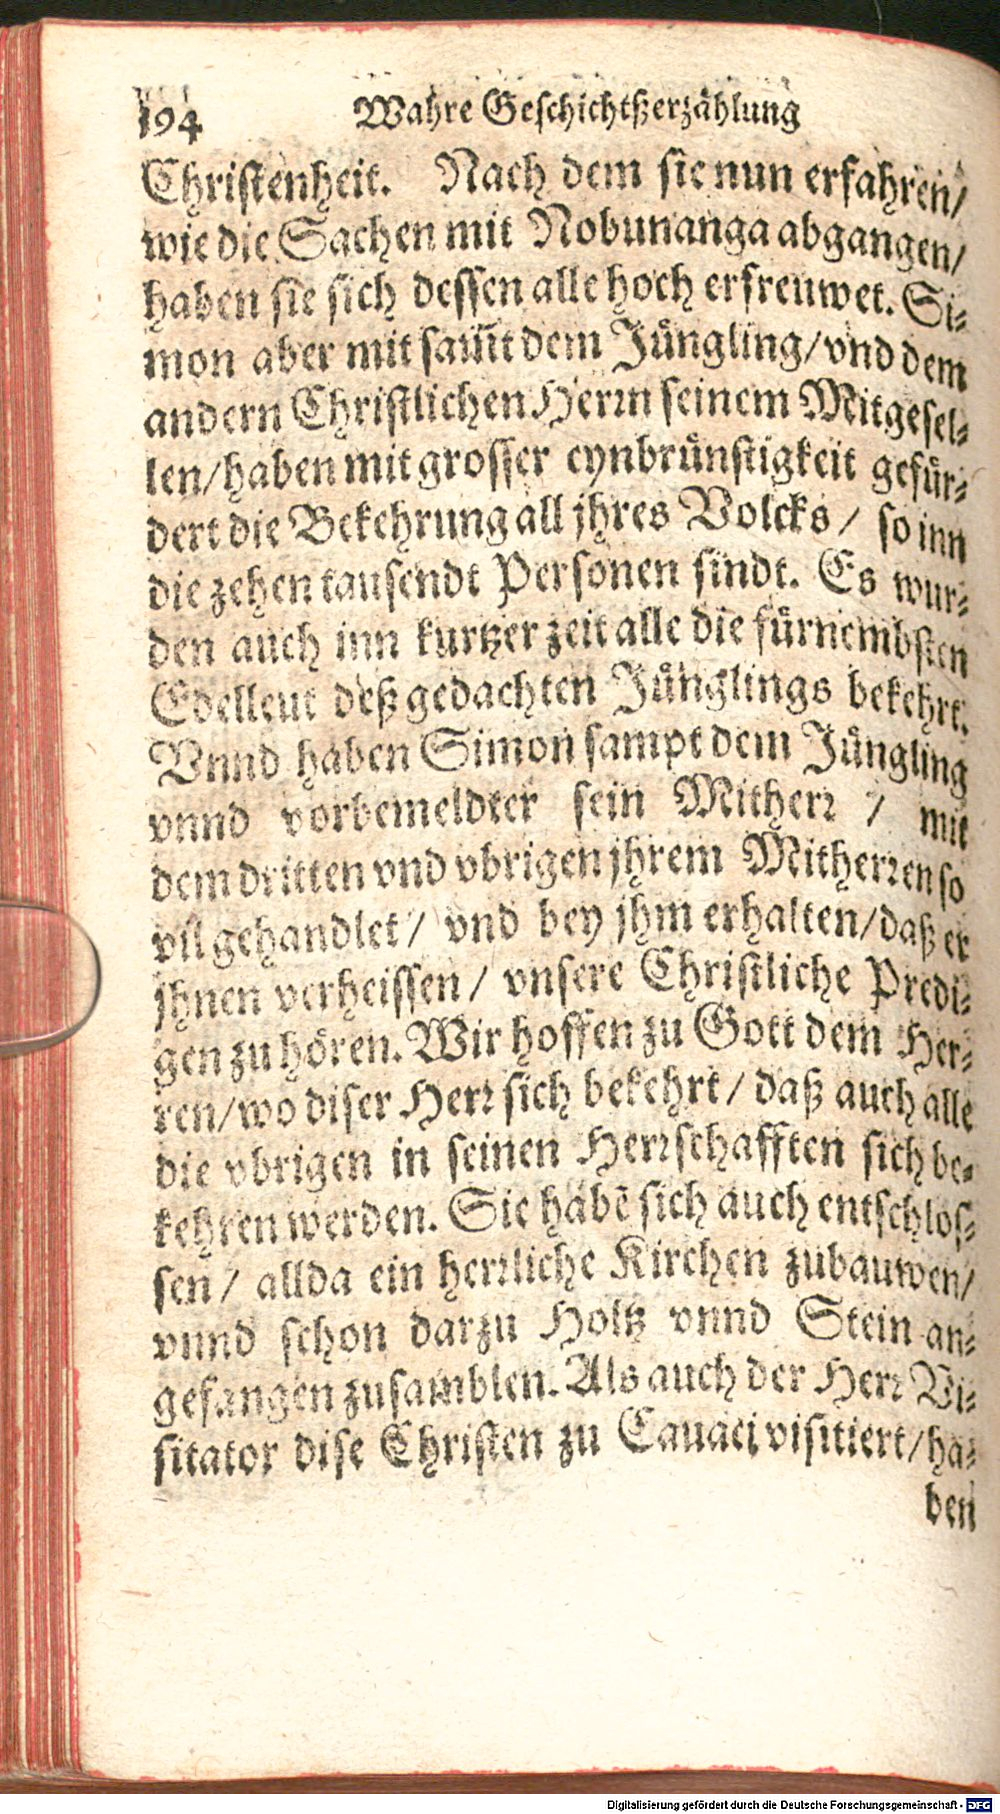 194 Wahre Geschichtßerzählung
Christenheit. Nach dem sie nun erfahren/
wie die Sachen mit Nobunanga abgangen/
haben sie sich dessen alle hoch erfreuwet. Si⸗
mon aber mit sam̃t dem Jüngling/vnd dem
andern Christlichen Herrn seinem Mitgesel⸗
len/haben mit grosser eynbrünstigkeit gefür⸗
dert die Bekehrung all jhres Volcks / so inn
die zehen tausendt Personen sindt. Es wur⸗
den auch inn kurtzer zeit alle die fürnembsten
Edelleut deß gedachten Jünglings bekehrt.
Vnnd haben Simon sampt dem Jüngling
vnnd vorbemeldter sein Mitherr / mit
dem dritten vnd vbrigen jhrem Mitherren so
vil gehandlet/ vnd bey jhm erhalten/daß er
jhnen verheissen/ vnsere Christliche Predi⸗
gen zu hören. Wir hoffen zu Gott dem Her⸗
ren/wo diser Herr sich bekehrt/ daß auch alle
die vbrigen in seinen Herrschafften sich be⸗
kehren werden. Sie habẽ sich auch entschlos⸗
sen/ allda ein herrliche Kirchen zubauwen/
vnnd schon darzu Holtz vnnd Stein an⸗
gefangen zusamblen. Als auch der Herr Vi⸗
sitator dise Christen zu Cauaci visitiert/ha⸗
ben
Digitalisierung gefördert durch die Deutsche Forschungsgemeinschaft - DFG